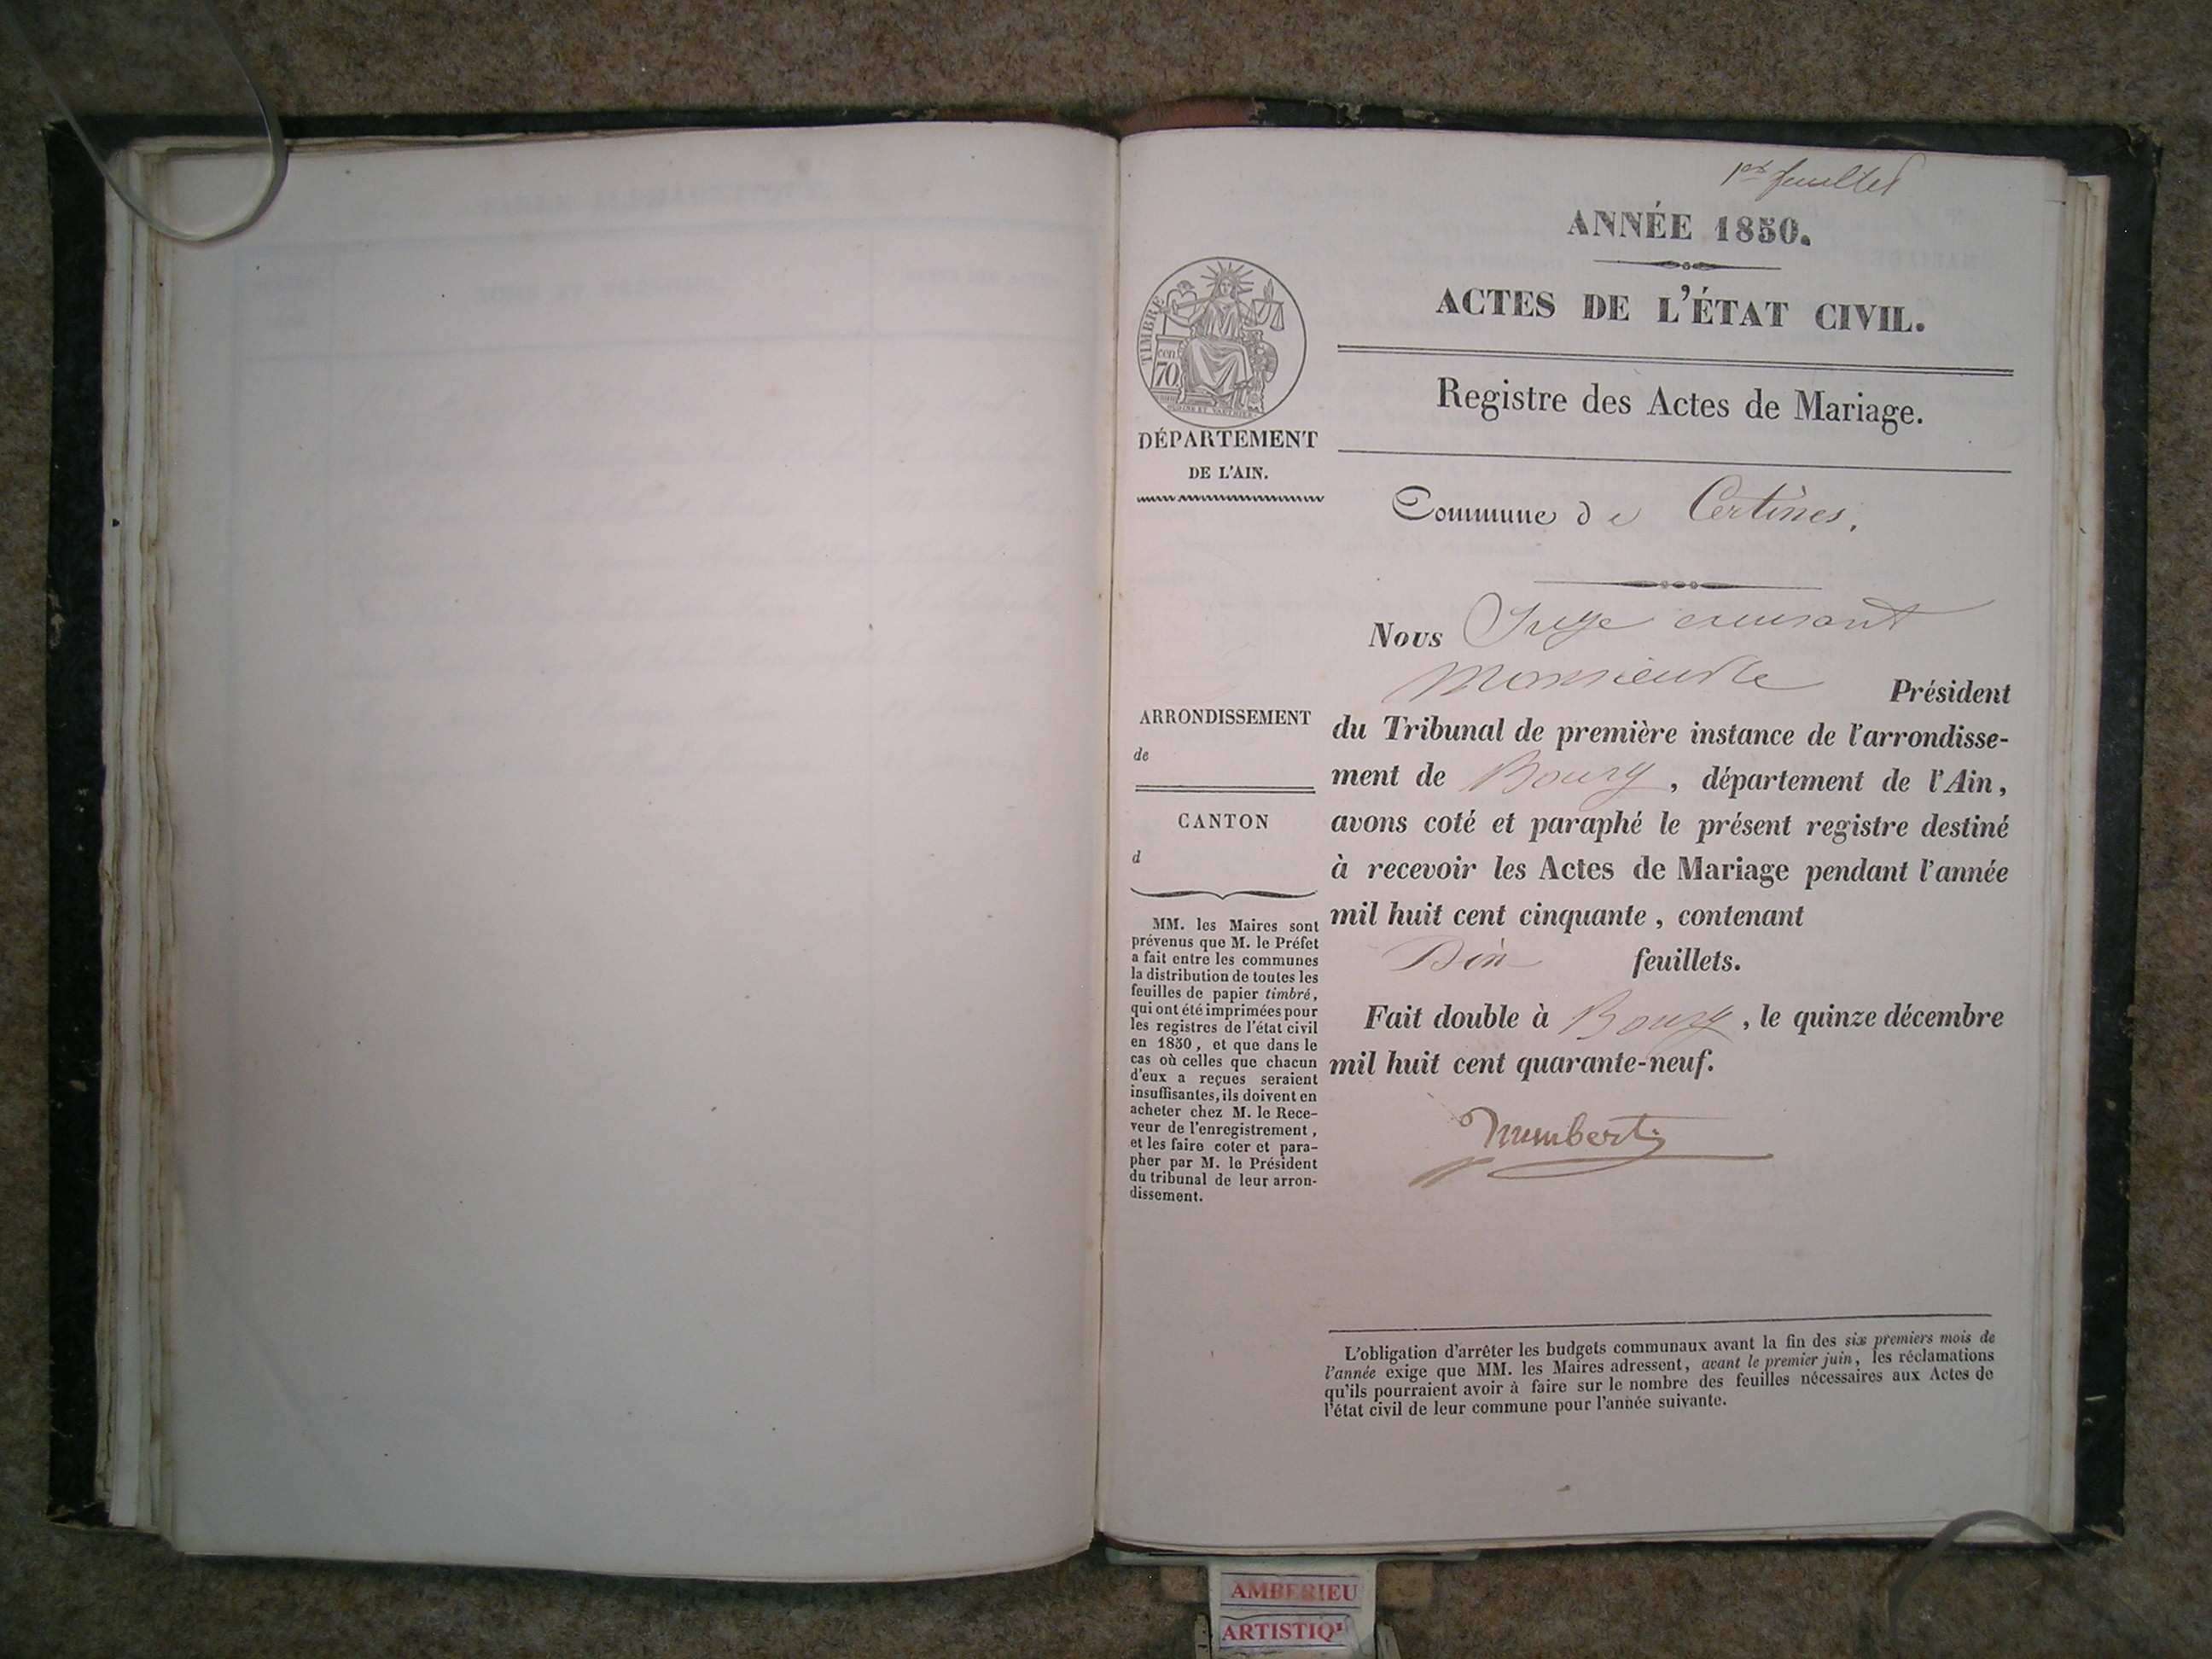 1er feuillet
ANNÉE 1850.
ACTES DE L'ÉTAT CIVIL.
Registre des Actes de Mariage.
TIMBRE
cen.
70
DÉPARTEMENT
DE L'AIN.
Commune de Certines.
Nous Juge
Monsieur le Président
du Tribunal de première instance de l'arrondisse-
ment de Bourg, département de l'Ain,
avons coté et paraphé le présent registre destiné
à recevoir les Actes de Mariage pendant l'année
mil huit cent cinquante, contenant
feuillets.
Fait double à Bourg, le quinze décembre
mil huit cent quarante-neuf.
Humbert
ARRONDISSEMENT
de
CANTON
d
MM. les Maires sont
prévenus que M. le Préfet
a fait entre les communes
la distribution de toutes les
feuilles de papier timbré,
qui ont été imprimées pour
les registres de l'état civil
en 1850, et que dans le
cas où celles que chacun
d'eux a reçues seraient
insuffisantes, ils doivent en
acheter chez M. le Rece-
veur de l'enregistrement,
et les faire coter et para-
pher par M. le Président
du tribunal de leur arron-
dissement.
L'obligation d'arrêter les budgets communaux avant la fin des six premiers mois de
l'année exige que MM. les Maires adressent, avant le premier juin, les réclamations
qu'ils pourraient avoir à faire sur le nombre des feuilles nécessaires aux Actes de
l'état civil de leur commune pour l'année suivante.
AMBERIEU
ARTISTIQ